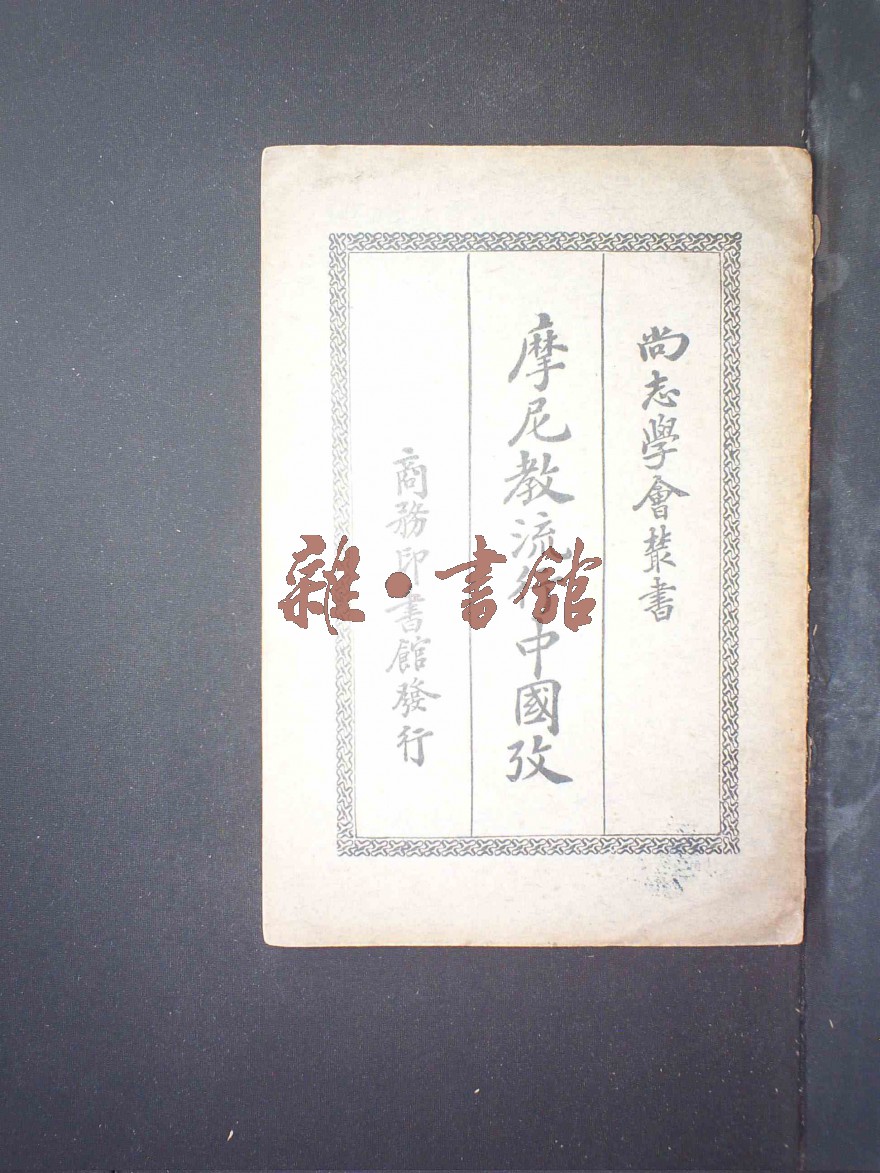 尚志學會叢書
摩尼教流行中國攷
商務印書館發行
雜·書館